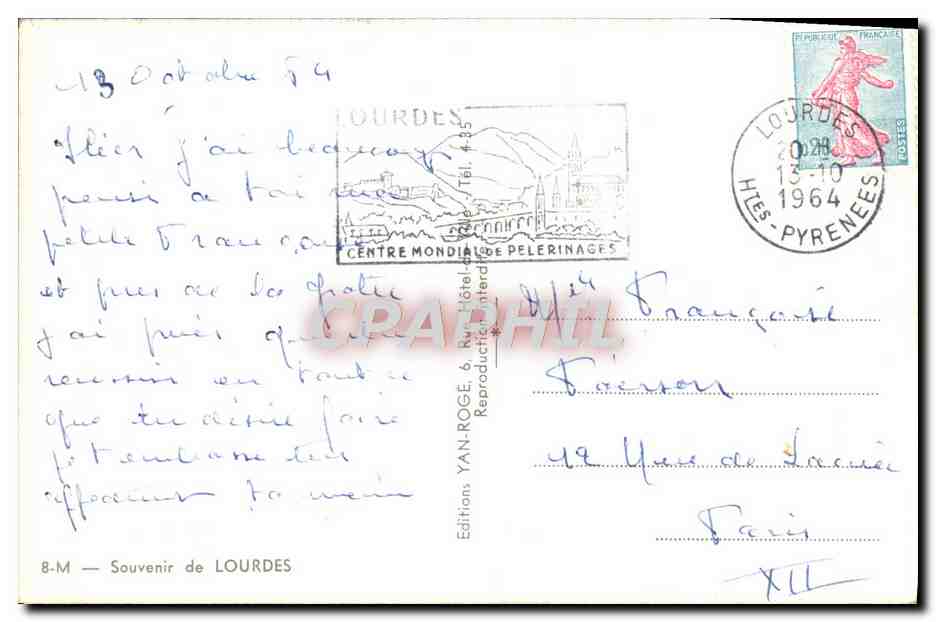 13 Octobre 64
Hier j'ai beaucoup
pensé a toi ma
petite Françoise
et pres de la grotte
j'ai priée que tu
reussisse en tout ce
que tu désire faire
je t'embrasse tres
affectueusement ta
LOURDES
CENTRE MONDIAL DE PELERINAGES
REPUBLIQUE FRANÇAISE
0.20
POSTES
LOURDES
20 H
13-10
1964
HTES-PYRENEES
CPAPHIL
Editions YAN-ROGE, 6, Rue Hôtel-de-Ville - Tél. 4-35
Reproduction interdite
Mlle Françoise
12 Rue de
Paris
XII
8-M — Souvenir de LOURDES